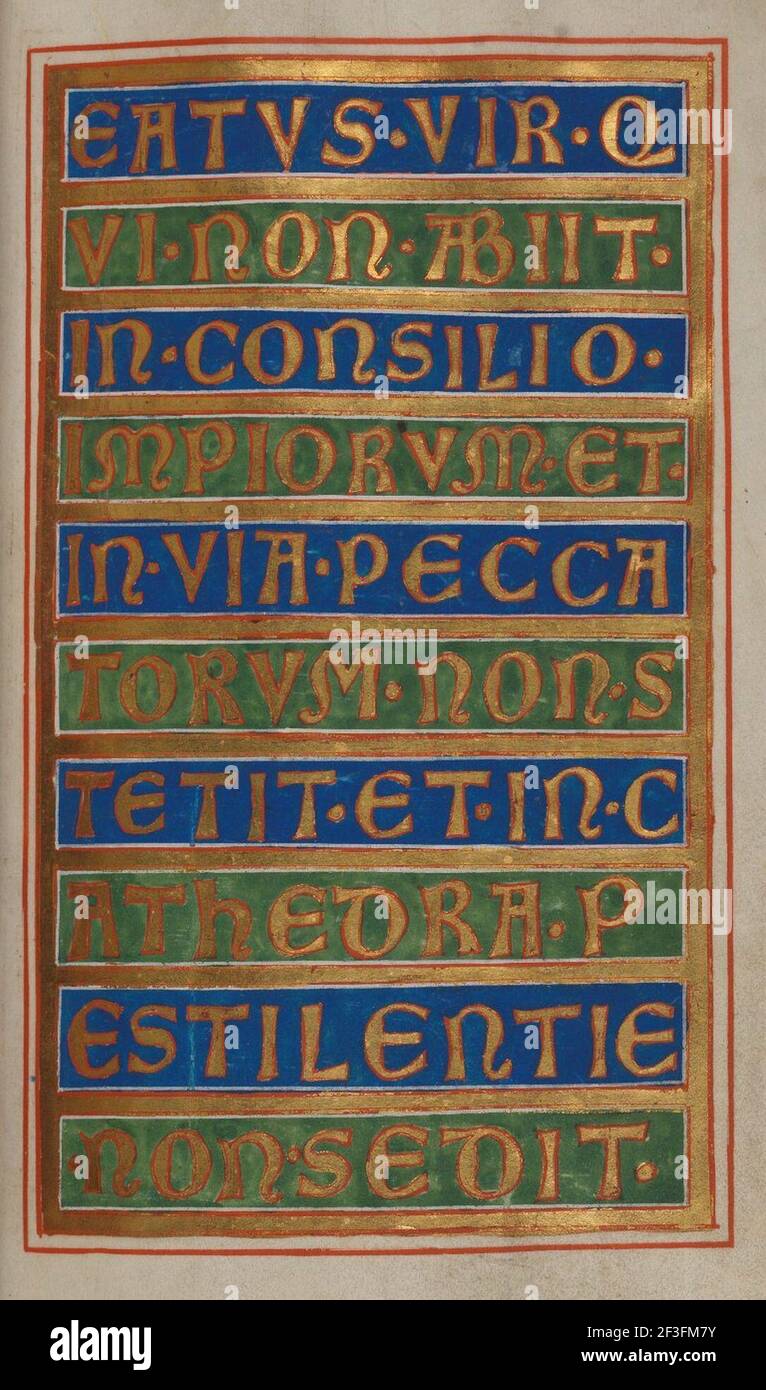 EATVS·VIR·Q
VI·NON·ABIIT·
IN·CONSILIO·
IMPIORVM·ET·
IN·VIA·PECCA
TORVM·NON·S
TETIT·ET·IN·C
AThEDRA·P
ESTILENTIE
·NON·SEDIT·
alamy
alamy
alamy
a
alamy
Image ID: 2F3FM7Y
www.alamy.com